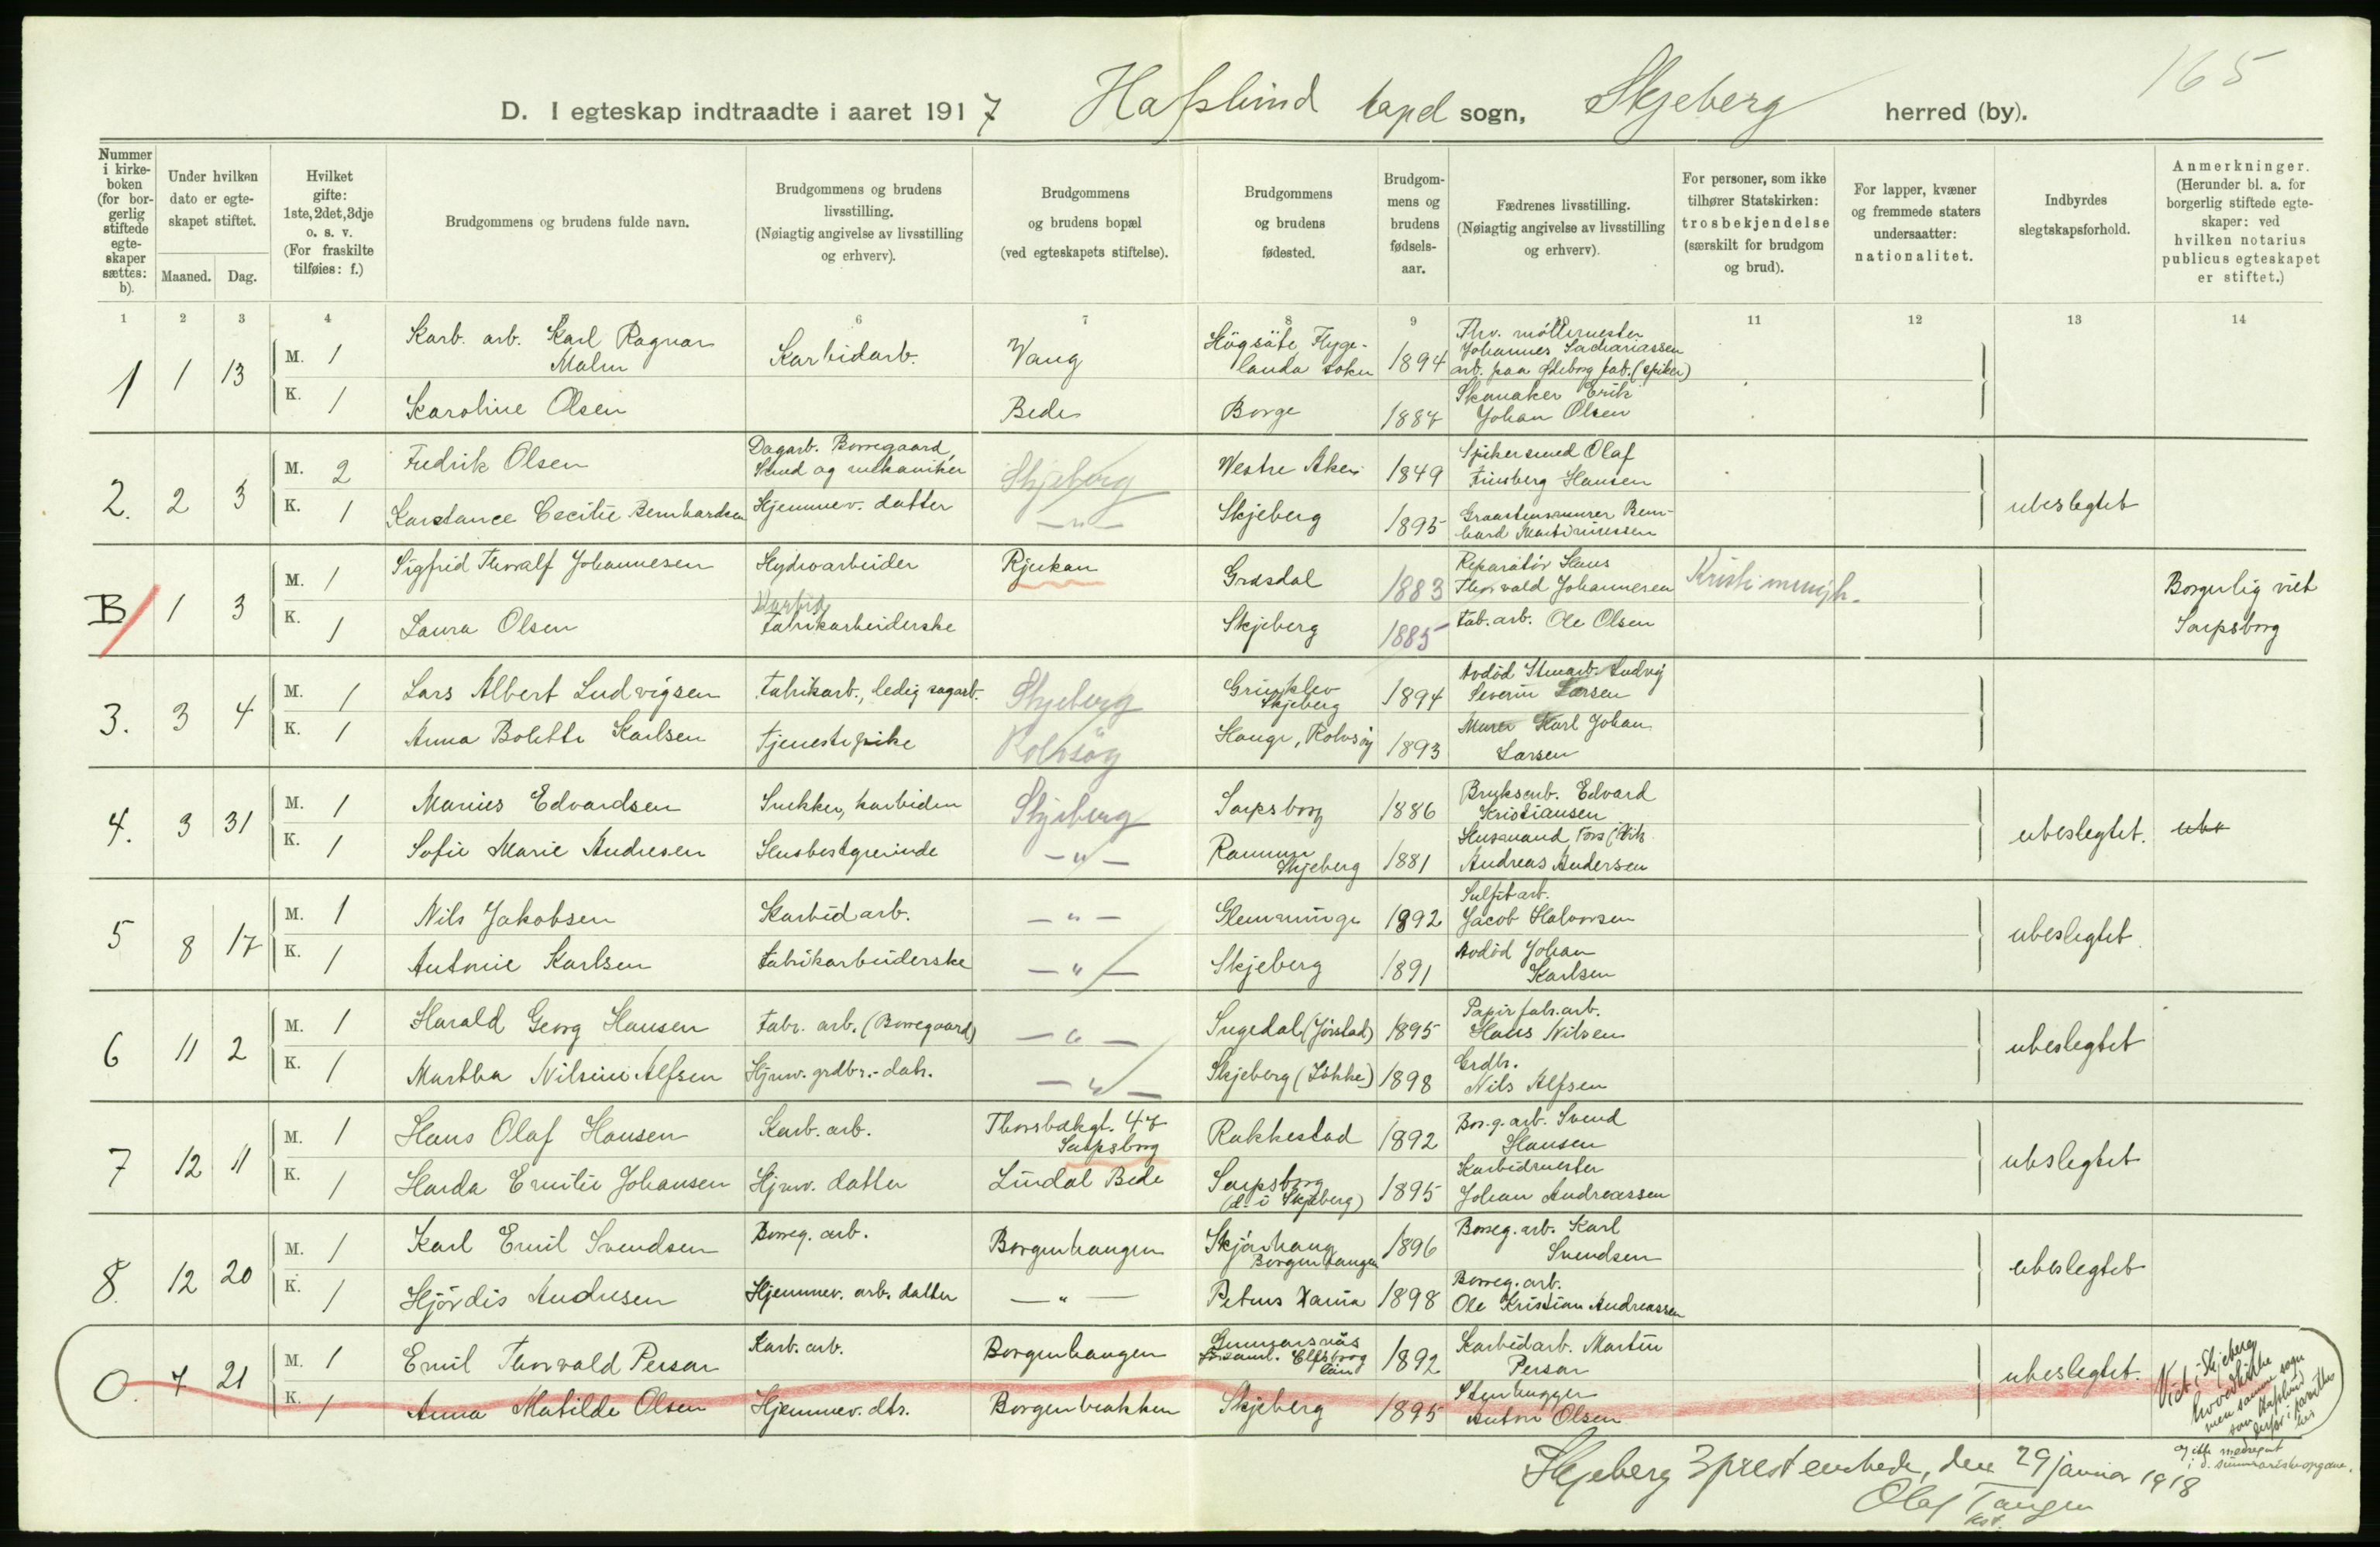 165
D. I egteskap indtraadte i aaret 1917 Hafslund kapel sogn, Skjeberg herred (by).
Nummer i kirke-boken (for bor-gerlig stiftede egte-skaper sættes: b).
Under hvilken dato er egte-skapet stiftet.
Maaned. Dag.
Hvilket gifte: 1ste, 2det, 3dje o. s. v. (For fraskilte tilføies: f.)
Brudgommens og brudens fulde navn.
Brudgommens og brudens livsstilling. (Nøiagtig angivelse av livsstilling og erhverv).
Brudgommens og brudens bopæl (ved egteskapets stiftelse).
Brudgommens og brudens fødested.
Brudgom-mens og brudens fødsels-aar.
Fædrenes livsstilling. (Nøiagtig angivelse av livsstilling og erhverv).
For personer, som ikke tilhører Statskirken: trosbekjendelse (særskilt for brudgom og brud).
For lapper, kvæner og fremmede staters undersaatter: nationalitet.
Indbyrdes slegtskapsforhold.
Anmerkninger. (Herunder bl. a. for borgerlig stiftede egte-skaper: ved hvilken notarius publicus egteskapet er stiftet.)
1 2 3 4 6 7 8 9 10 11 12 13 14
1 1 13 M. 1 Karb. arb. Karl Ragnar Malm Karbidarb. Vang 1894 Johannes Sachariassen
K. 1 Karoline Olsen Bede Borge 1887 Skomaker Erik Johan Olsen
2. 2 3 M. 2 Fredrik Olsen Dagarb. Borregaard, Smed og mekaniker Skjeberg Vestre Aker 1849 Spikersmed Olaf Finsberg Hansen ubeslegtet
K. 1 Konstance Cecilie Bernhardsen Hjemmev. datter — " — Skjeberg 1895
B 1 3 M. 1 Sigfrid Thoralf Johannesen Hydroarbeider Rjukan 1883 Reparatör Hans Thorvald Johannesen Borgerlig viet Sarpsborg
K. 1 Laura Olsen Karbid Fabrikarbeiderske Skjeberg 1885 Fab. arb. Ole Olsen
3. 3 4 M. 1 Lars Albert Ludvigsen Fabrikarb., ledig sagarb. Skjeberg Skjeberg 1894 Avdöd Stenarb. Ludvig Severin Larsen
K. 1 Anna Bolette Karlsen Tjenestepike Rolvsöy Hauge, Rolvsöy 1893 Murer Karl Johan Larsen
4. 3 31 M. 1 Marius Edvardsen Snekker, karbiden Skjeberg Sarpsborg 1886 Bruksarb. Edvard Kristiansen ubeslegtet. ube
K. 1 Sofie Marie Andresen Husbestyrerinde — " — Skjeberg 1881 Husmand Andreas Andersen
5 8 17 M. 1 Nils Jakobsen Karbidarb. — " — Glemminge 1892 Sulfitarb. Jacob Halvorsen ubeslegtet
K. 1 Antonie Karlsen Fabrikarbeiderske — " — Skjeberg 1891 Avdöd Johan Karlsen
6 11 2 M. 1 Harald Georg Hansen Fabr. arb. (Borregaard) — " — 1895 Papirfabr. arb. Hans Nilsen ubeslegtet
K. 1 Martha Nilsine Alfsen Hjmv. grdbr.-datr. — " — Skjeberg (Lökke) 1898 Grdbr. Nils Alfsen
7 12 11 M. 1 Hans Olaf Hansen Karb. arb. Thorsbakgt. 47 Sarpsborg Rakkestad 1892 Borg. arb. Svend Hansen ubeslegtet
K. 1 Harda Emilie Johansen Hjmv. datter Lindal Bede Sarpsborg (d. i Skjeberg) 1895 Karbidmester Johan Andreassen
8. 12 20 M. 1 Karl Emil Svendsen Borreg. arb. Borgenhaugen Borgenhaugen 1896 Borreg. arb. Karl Svendsen ubeslegtet
K. 1 Hjördis Andresen Hjemmev. arb. datter — " — 1898 Borreg. arb. Ole Kristian Andreassen
0. 7 21 M. 1 Emil Thorvald Persar Karb. arb. Borgenhaugen Gunnarsnäs församl. Elfsborg län 1892 Karbidarb. Martin Persar ubeslegtet. Viet i Skjeberg hovedkirke men samme sogn som Hafslund
K. 1 Anna Matilde Olsen Hjemmev. dtr. Borgenbrakken Skjeberg 1895 Stenhugger Anton Olsen
Skjeberg sprestembede, den 29 januar 1918
Olaf Tangen
kst.